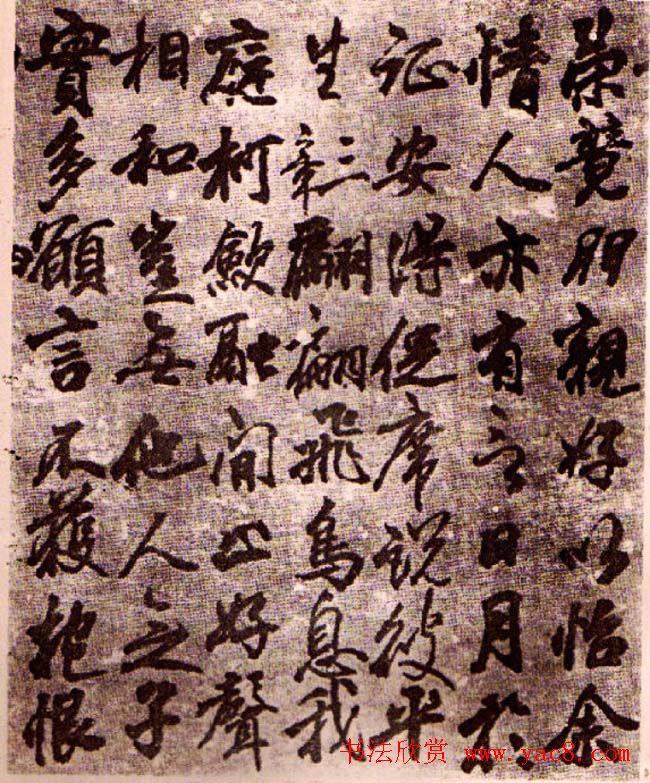 榮競朋親好以怡余
情人亦有言日月於
征安得促席説彼平
生三章翩翩飛鳥息我
庭柯斂翮間止好聲
相和豈無他人念子
實多願言不獲抱恨
书法欣赏 www.yac8.com